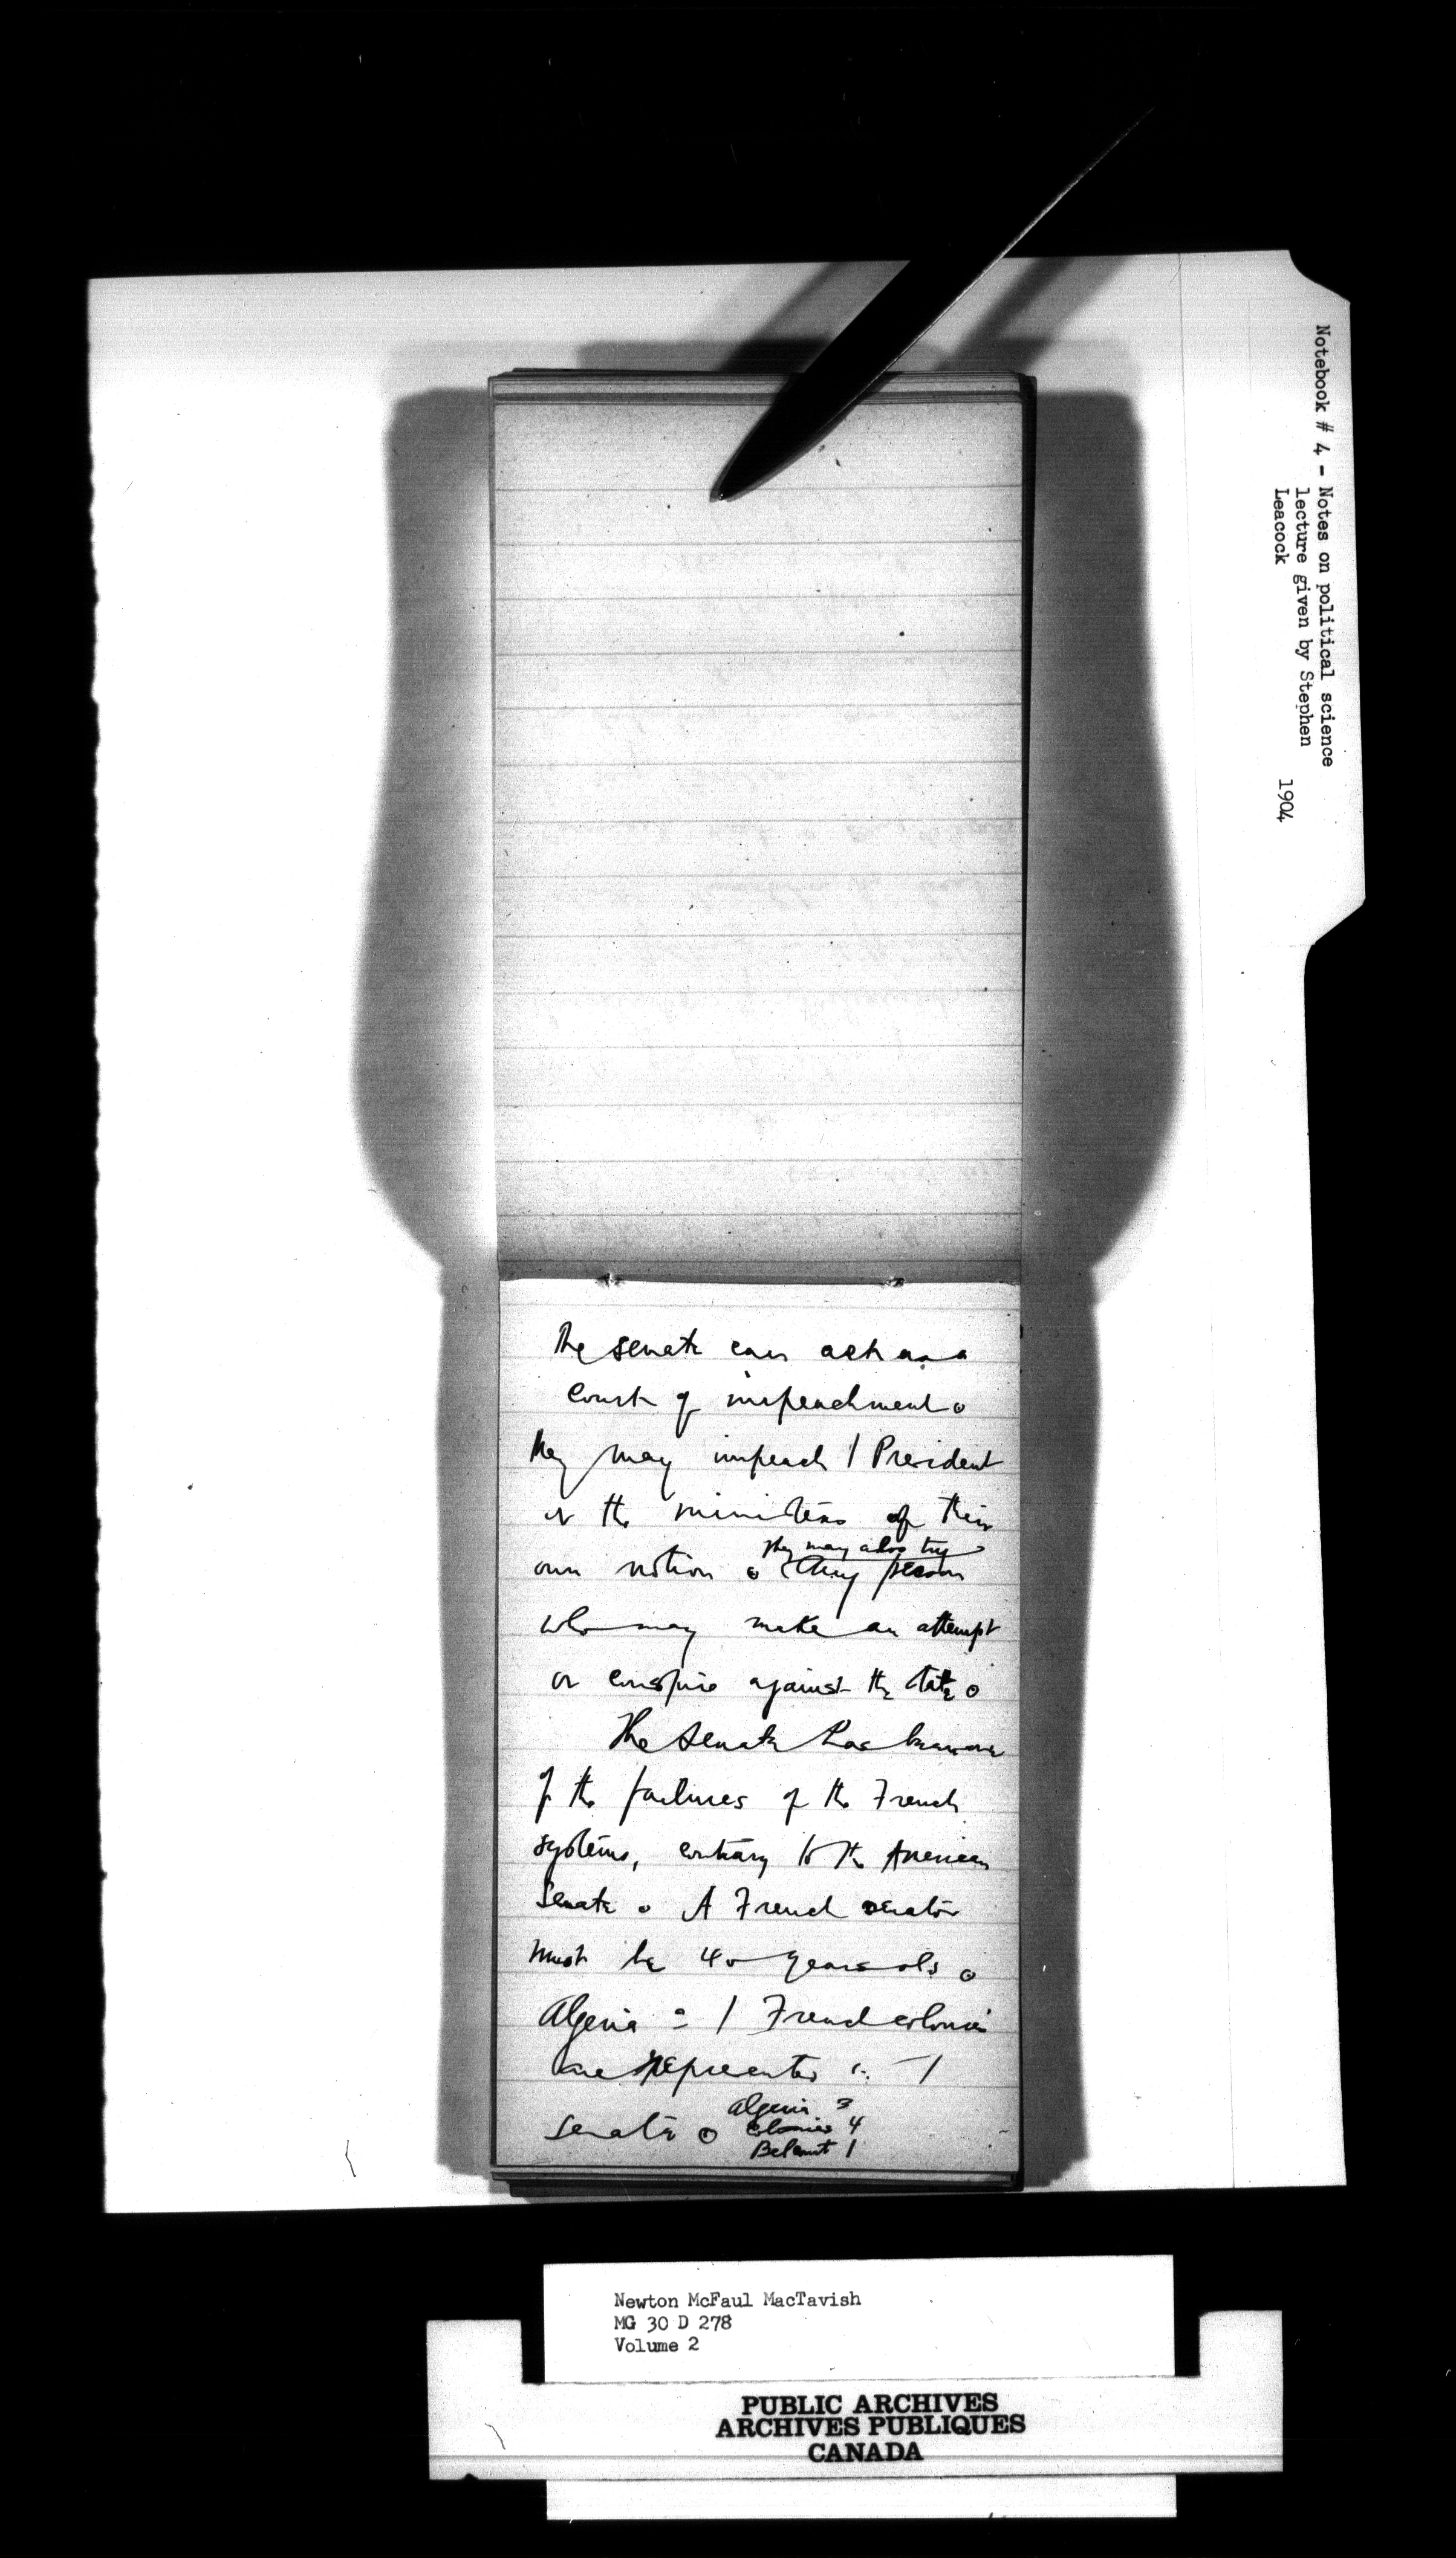 Notebook # 4 - Notes on political science
lecture given by Stephen
Leacock 1904
The senate can act as a
Court of impeachment.
They may impeach / President
or the ministers of their
own notion. They may also try
any person
who may make an attempt
or conspire against the state.
The senate has become
of the failures of the French
systems, contrary to the American
Senate. A French senator
must be 40 years old.
Algeria = / French colonies
are represented in /
senate. Algeria 3
Colonies 4
Belamt 1
Newton McFaul MacTavish
MG 30 D 278
Volume 2
PUBLIC ARCHIVES
ARCHIVES PUBLIQUES
CANADA